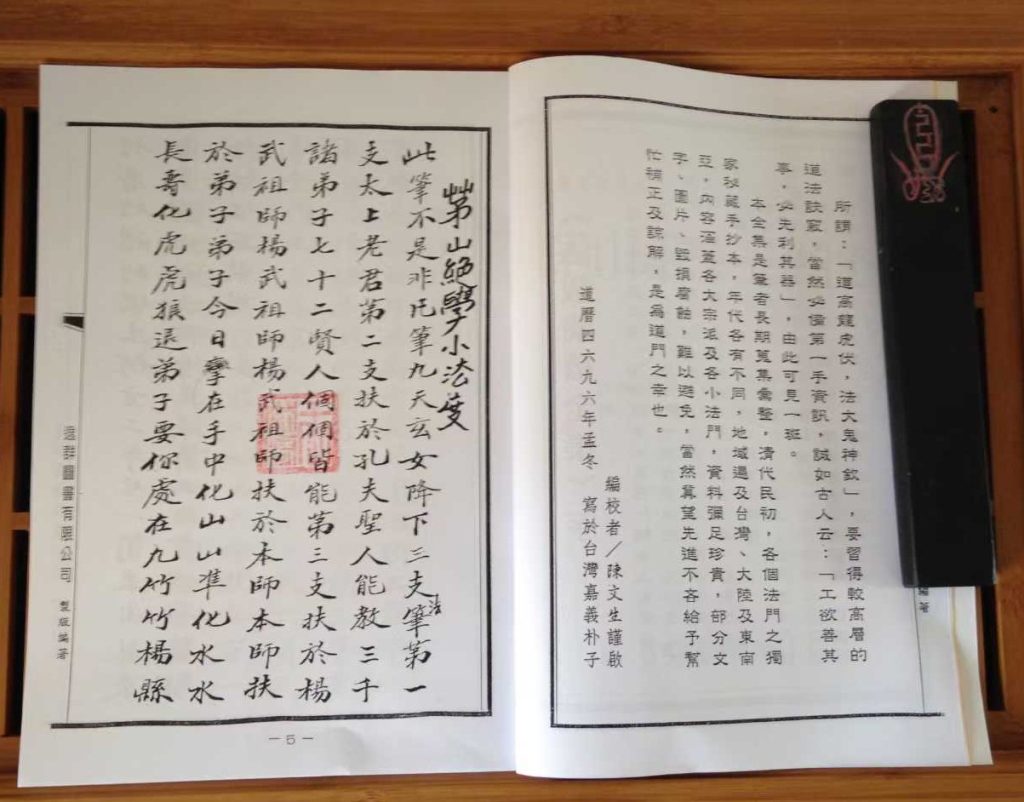 所謂：「道高龍虎伏，法大鬼神欽」，要習得較高層的
道法訣竅，當然必備第一手資訊，誠如古人云：「工欲善其
事，必先利其器」，由此可見一班。
本全集是筆者長期蒐集彙整，清代民初，各個法門之獨
家秘藏手抄本，年代各有不同，地域遍及台灣、大陸及東南
亞，內容涵蓋各大宗派及各小法門，資料彌足珍貴，部分文
字、圖片、毀損腐蝕，難以避免，當然冀望先進不吝給予幫
忙補正及諒解，是為道門之幸也。
編校者／陳文生謹啟
道曆四六九六年孟冬　寫於台灣嘉義朴子
編著
茅山絕學小法
此筆不是非凡筆九天玄女降下三支筆法第一
支太上老君第二支扶於孔夫聖人能教三千
諸弟子七十二賢人個個皆能第三支扶於楊
武祖師楊武祖師楊武祖師扶於本師本師扶
於弟子弟子今日拏在手中化山山準化水水
長哥化虎虎狼退弟子要你處在九竹竹楊縣
逸群圖書有限公司　製版編著
－5－